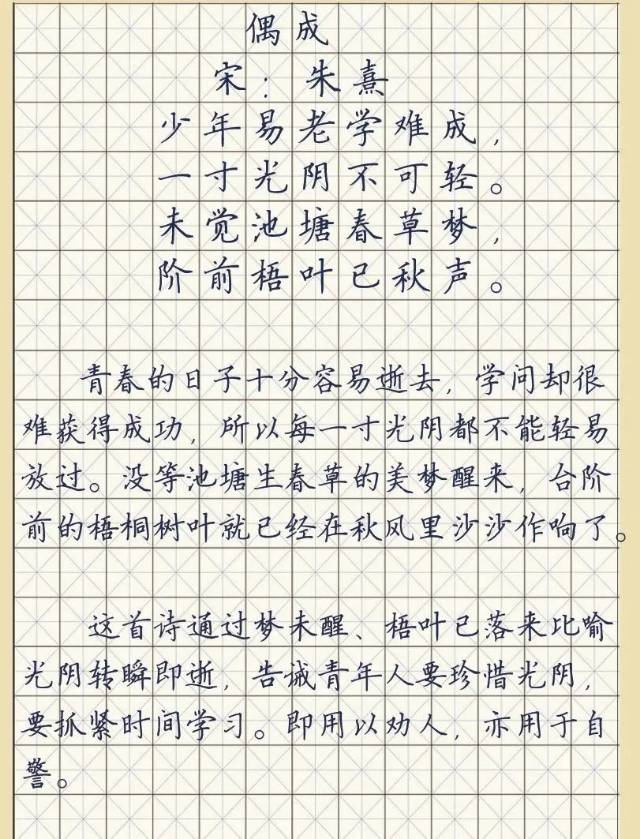 偶成
宋：朱熹
少年易老学难成，
一寸光阴不可轻。
未觉池塘春草梦，
阶前梧叶已秋声。
青春的日子十分容易逝去，学问却很
难获得成功，所以每一寸光阴都不能轻易
放过。没等池塘生春草的美梦醒来，台阶
前的梧桐树叶就已经在秋风里沙沙作响了。
这首诗通过梦未醒、梧叶已落来比喻
光阴转瞬即逝，告诫青年人要珍惜光阴，
要抓紧时间学习。即用以劝人，亦用于自
警。